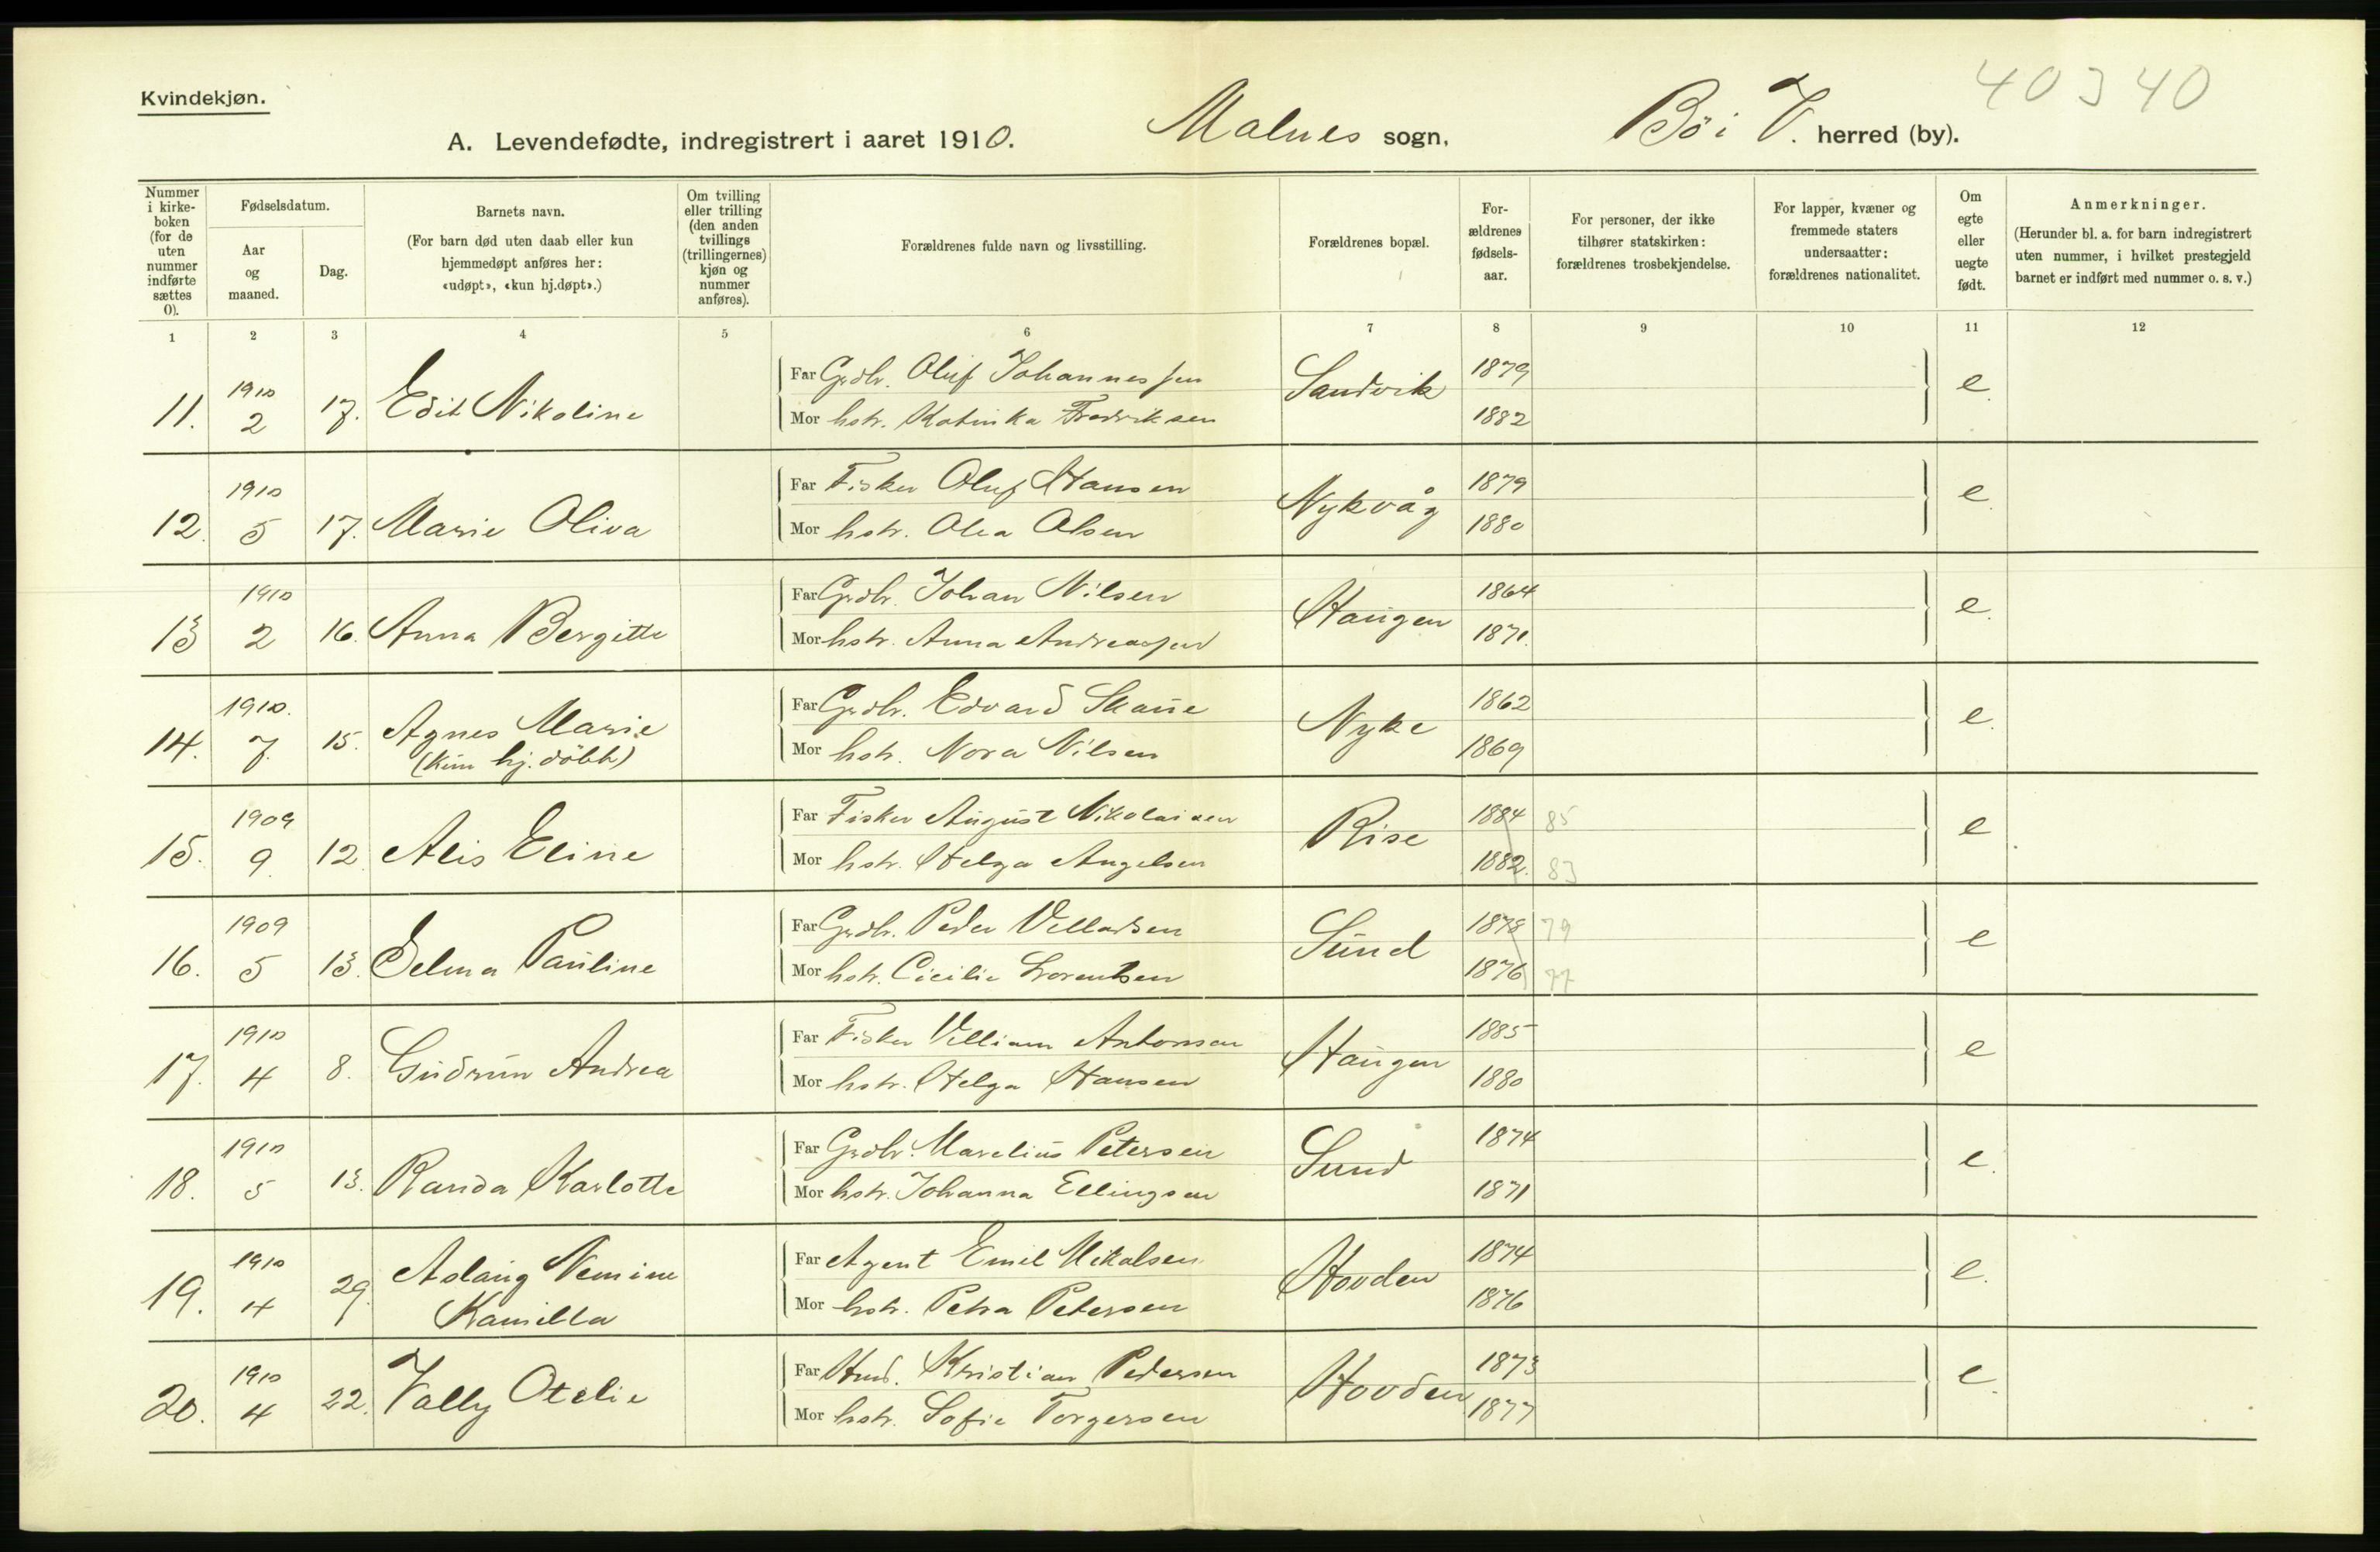 Kvindekjøn.
40340
A. Levendefødte, indregistrert i aaret 1910. Malnes sogn, Bö i V. herred (by).
Nummer i kirke-boken (for de uten nummer indførte sættes 0).
Fødselsdatum.
Aar og maaned.
Dag.
Barnets navn.
(For barn død uten daab eller kun hjemmedøpt anføres her: «udøpt», «kun hj.døpt».)
Om tvilling eller trilling (den anden tvillings (trillingernes) kjøn og nummer anføres).
Forældrenes fulde navn og livsstilling.
Forældrenes bopæl.
For-ældrenes fødsels-aar.
For personer, der ikke tilhører statskirken: forældrenes trosbekjendelse.
For lapper, kvæner og fremmede staters undersaatter: forældrenes nationalitet.
Om egte eller uegte født.
Anmerkninger.
(Herunder bl. a. for barn indregistrert uten nummer, i hvilket prestegjeld barnet er indført med nummer o. s. v.)
1 2 3 4 5 6 7 8 9 10 11 12
11. 1910 2 17. Edit Nikoline
Far Grdbr. Oluf Johannessen Sandvik 1879 e.
Mor hstr. Katinka Fredriksen 1882
12. 1910 5 17. Marie Oliva
Far Fisker Oluf Hansen Nykvåg 1879 e.
Mor hstr. Olea Olsen 1880
13 1910 2 16. Anna Bergitte
Far Grdbr. Johan Nilsen Haugen 1864 e.
Mor hstr. Anna Andreassen 1871.
14. 1910. 7. 15. Agnes Marie
(kun hj. döbt)
Far Grdbr. Edvard Skaue Nyke 1862 e.
Mor hstr. Nora Nilsen 1869
15. 1909 9. 12 Alis Eline
Far Fisker August Nikolaisen Rise 1884 85 e
Mor hstr. Helga Angelsen 1882. 83
16. 1909 5 13. Selma Pauline
Far Grdbr. Peder Velladsen Sund 1878 79 e
Mor hstr. Cicilie Lorentsen 1876 77
17. 1910 4 8. Gudrun Andrea
Far Fisker Villiam Antonsen Haugen 1885 e
Mor hstr. Helga Hansen 1880
18. 1910 5 13. Randa Karlotte
Far Grdbr. Marelius Petersen Sund 1874 e.
Mor hstr. Johanna Ellingsen 1871
19. 1910 4 29. Aslaug Nemine
Kamilla
Far Agent Emil Mikalsen Hovden 1874 e.
Mor hstr. Petra Petersen 1876
20. 1910 4 22. Vally Otelie
Far Hmd. Kristian Pedersen Hovden 1873 e.
Mor hstr. Sofie Torgersen 1877